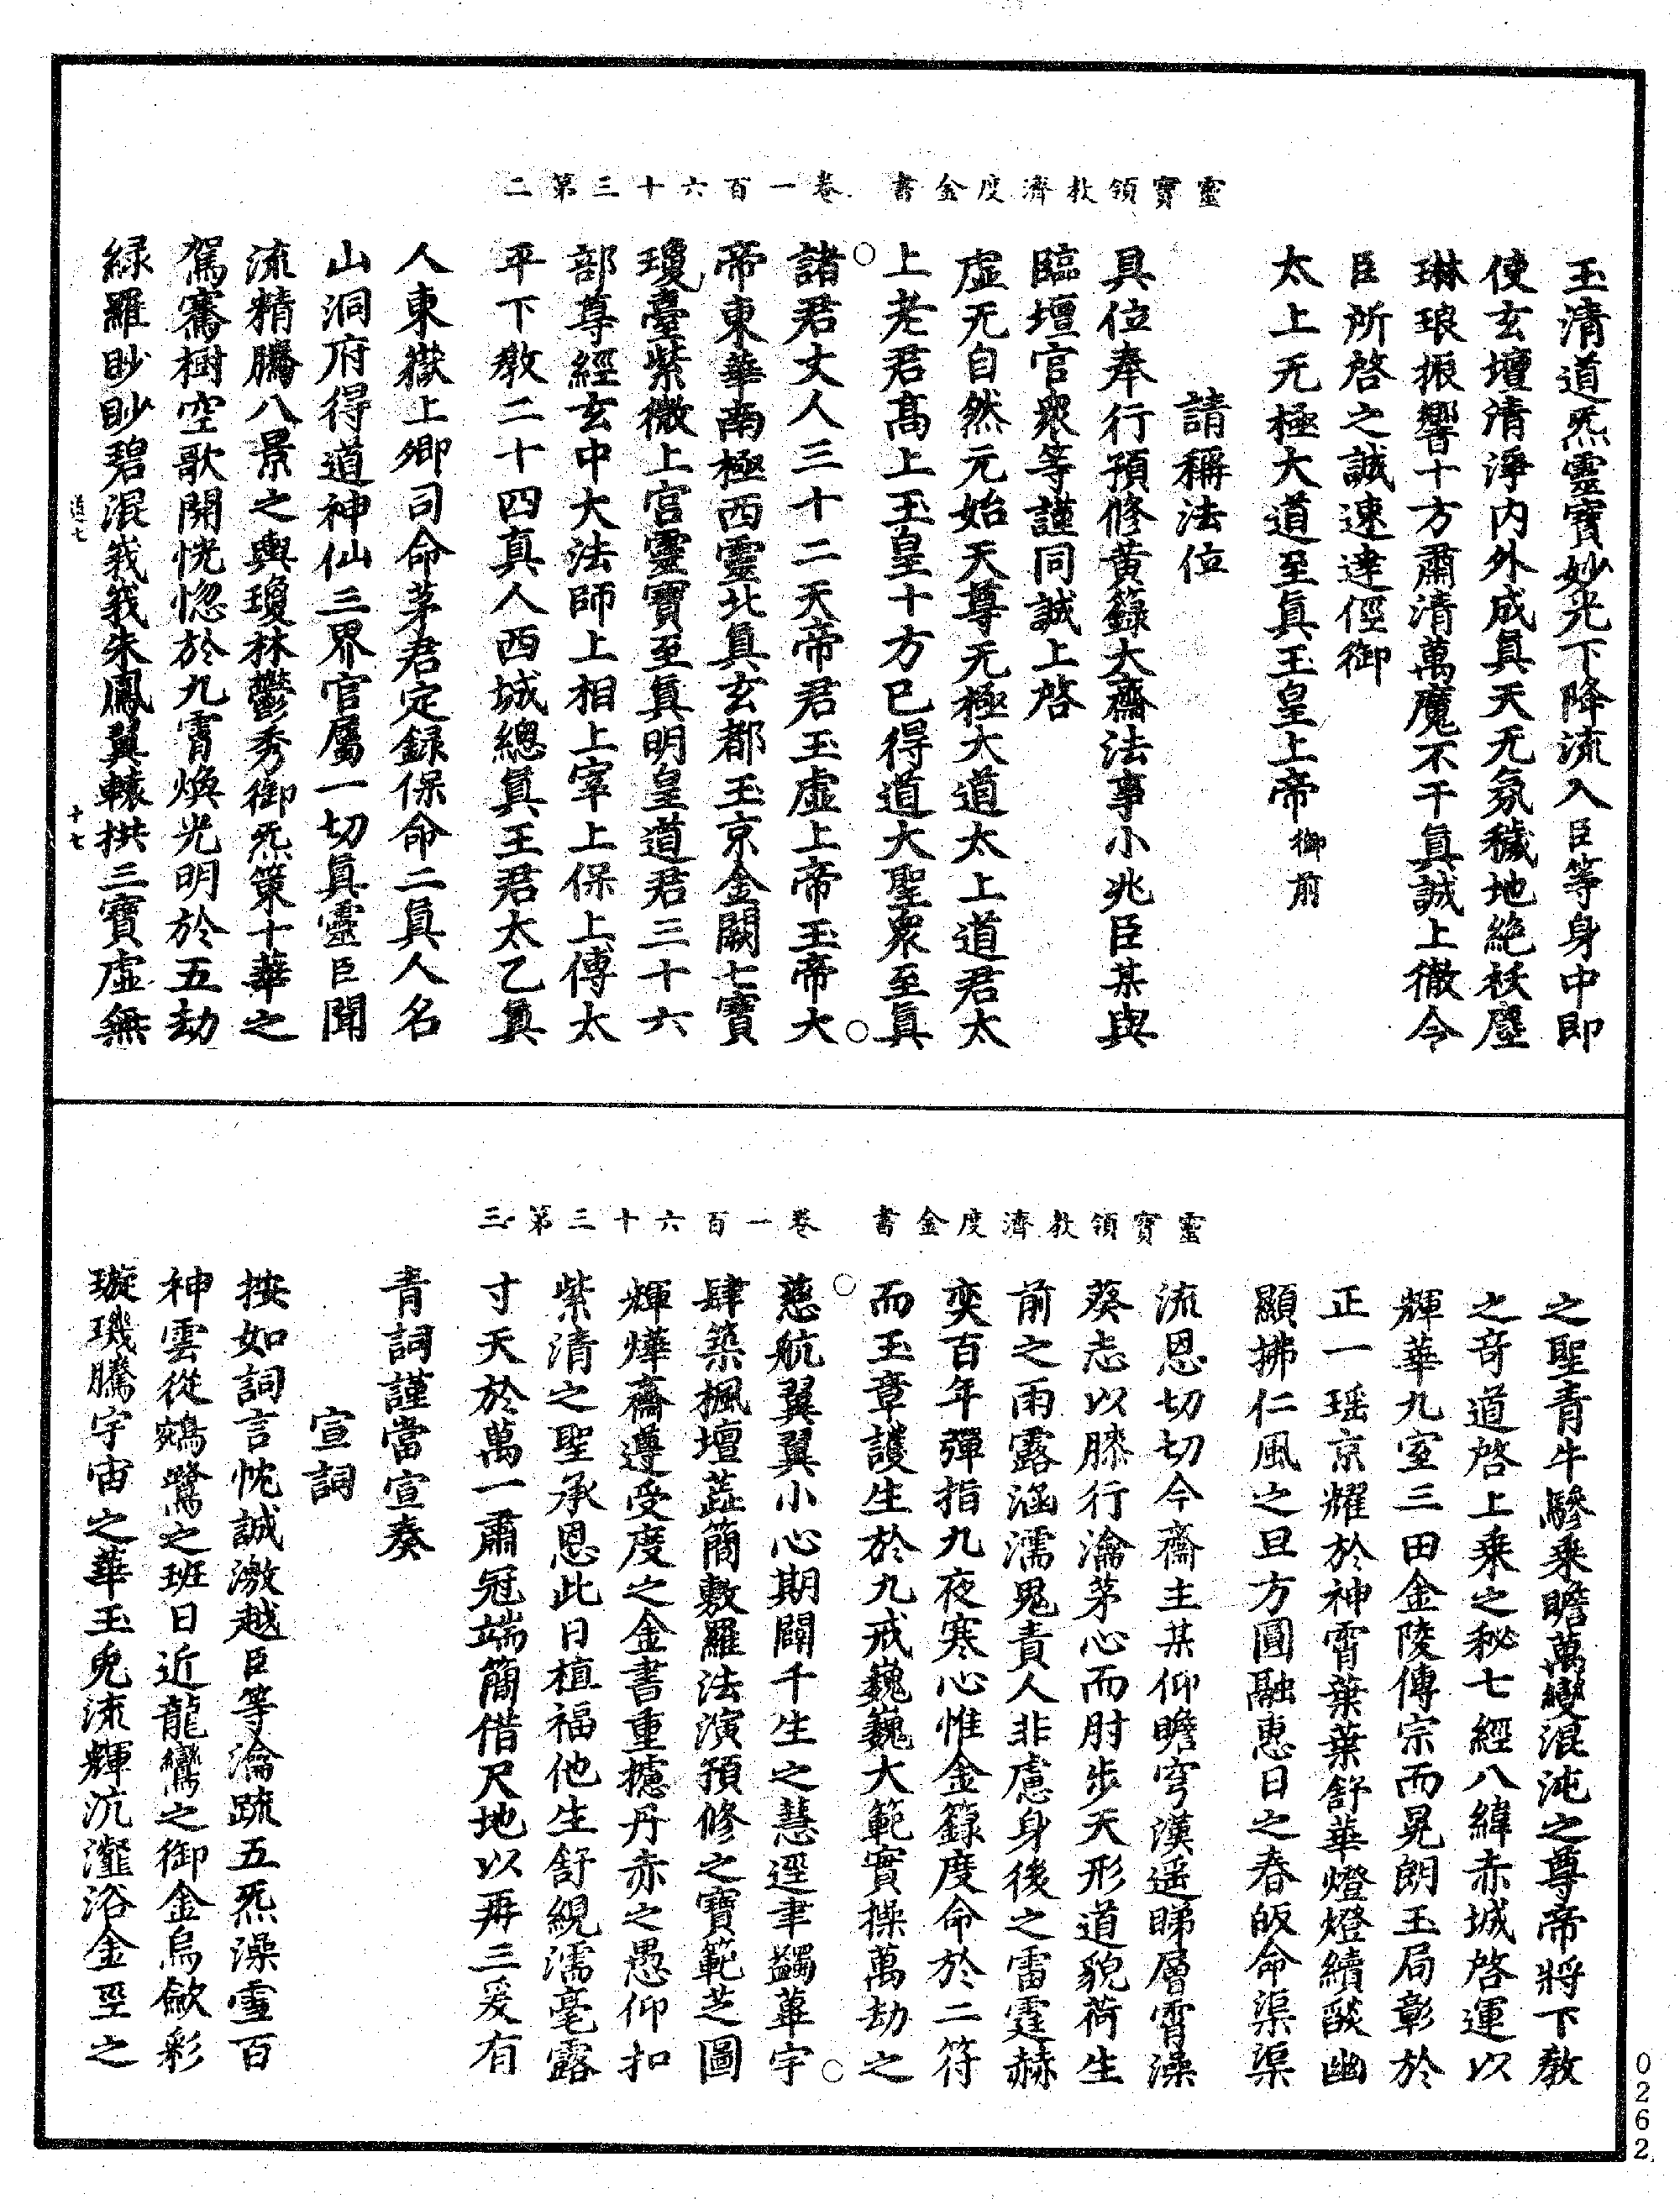 靈寶領教濟度金書　卷一百六十三第二
玉清道炁靈寶妙光下降流入臣等身中即
使玄壇清淨內外成真天无氛穢地絕袄塵
琳琅振響十方肅清萬魔不干真誠上徹今
臣所啓之誠速達徑御
太上无極大道至真玉皇上帝御前
請稱法位
具位奉行預修黃籙大齋法事小兆臣某與
臨壇官衆等謹同誠上啓
虛无自然元始天尊无極大道太上道君太
上老君高上玉皇十方已得道大聖衆至真
諸君丈人三十二天帝君玉虛上帝玉帝大
帝東華南極西靈北真玄都玉京金闕七寶
瓊臺紫微上宮靈寶至真明皇道君三十六
部尊經玄中大法師上相上宰上保上傅太
平下教二十四真人西城總真王君太乙真
人東嶽上卿司命茅君定錄保命二真人名
山洞府得道神仙三界官屬一切真靈臣聞
流精騰八景之輿瓊林鬱秀御炁策十華之
駕騫樹空歌開恍惚於九霄煥光明於五劫
綠羅眇眇碧混峩峩朱鳳翼轅拱三寶虛無
道七　十七
靈寶領教濟度金書　卷一百六十三第三
之聖青牛驂乘瞻萬變混沌之尊帝將下教
之竒道啓上乘之秘七經八緯赤城啓運以
輝華九室三田金陵傳宗而晃朗玉局彰於
正一瑶京燿於神霄葉葉舒華燈燈續燄幽
顯拂仁風之旦方圓融惠日之春皈命渠渠
流恩切切今齋主某仰瞻穹漢遥睇層霄澡
葵志以膝行瀹茅心而肘步天形道貌荷生
前之雨露涵濡鬼責人非慮身後之雷霆赫
奕百年彈指九夜寒心惟金籙度命於二符
而玉章護生於九戒巍巍大範實操萬劫之
慈航翼翼小心期闢千生之慧逕聿蠲蓽宇
肆築楓壇蕋簡敷羅法演預修之寶範芝圖
輝燁齋遵受度之金書重攄丹赤之愚仰扣
紫清之聖承恩此日植福他生舒綥濡毫露
寸天於萬一肅冠端簡借尺地以再三爰有
青詞謹當宣奏
宣詞
按如詞言忱誠激越臣等瀹䟽五炁澡雪百
神雲從鵷鷺之班日近龍鸞之御金烏斂彩
璇璣騰宇宙之華玉兔流輝沆瀣浴金莖之
0262